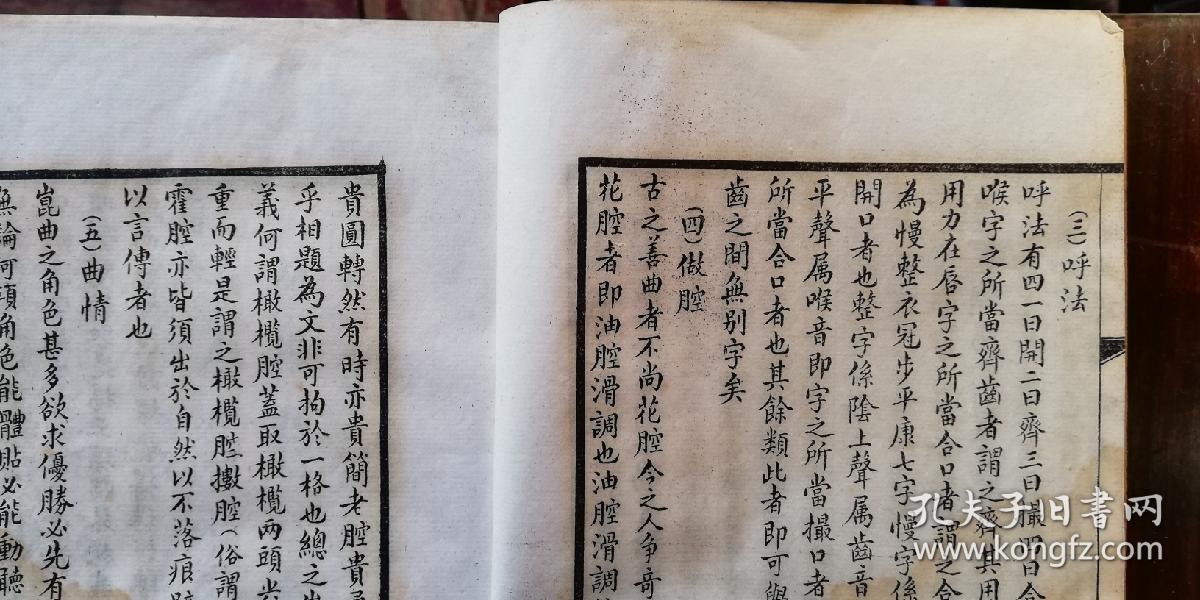 (三)呼法
呼法有四一曰開二曰齊三曰撮四曰合
喉字之所當齊齒者謂之齊其用
用力在唇字之所當合口者謂之合
為慢整衣冠步平康七字慢字係
開口者也整字係陰上聲属齒音
平聲属喉音即字之所當撮口者
所當合口者也其餘類此者即可
齒之間無别字矣
(四)做腔
古之善曲者不尚花腔今之人争奇
花腔者即油腔滑調也油腔滑調
貴圓轉然有時亦貴簡老腔貴
乎相題為文非可拘於一格也總之
義何謂橄欖腔蓋取橄欖两頭尖
重而輕是謂之橄欖腔擻腔(俗謂
霍腔亦皆須出於自然以不落痕跡
以言傳者也
(五)曲情
崑曲之角色甚多欲求優勝必先有
無論何項角色能體貼必能動聽
孔夫子旧书网
www.kongfz.com